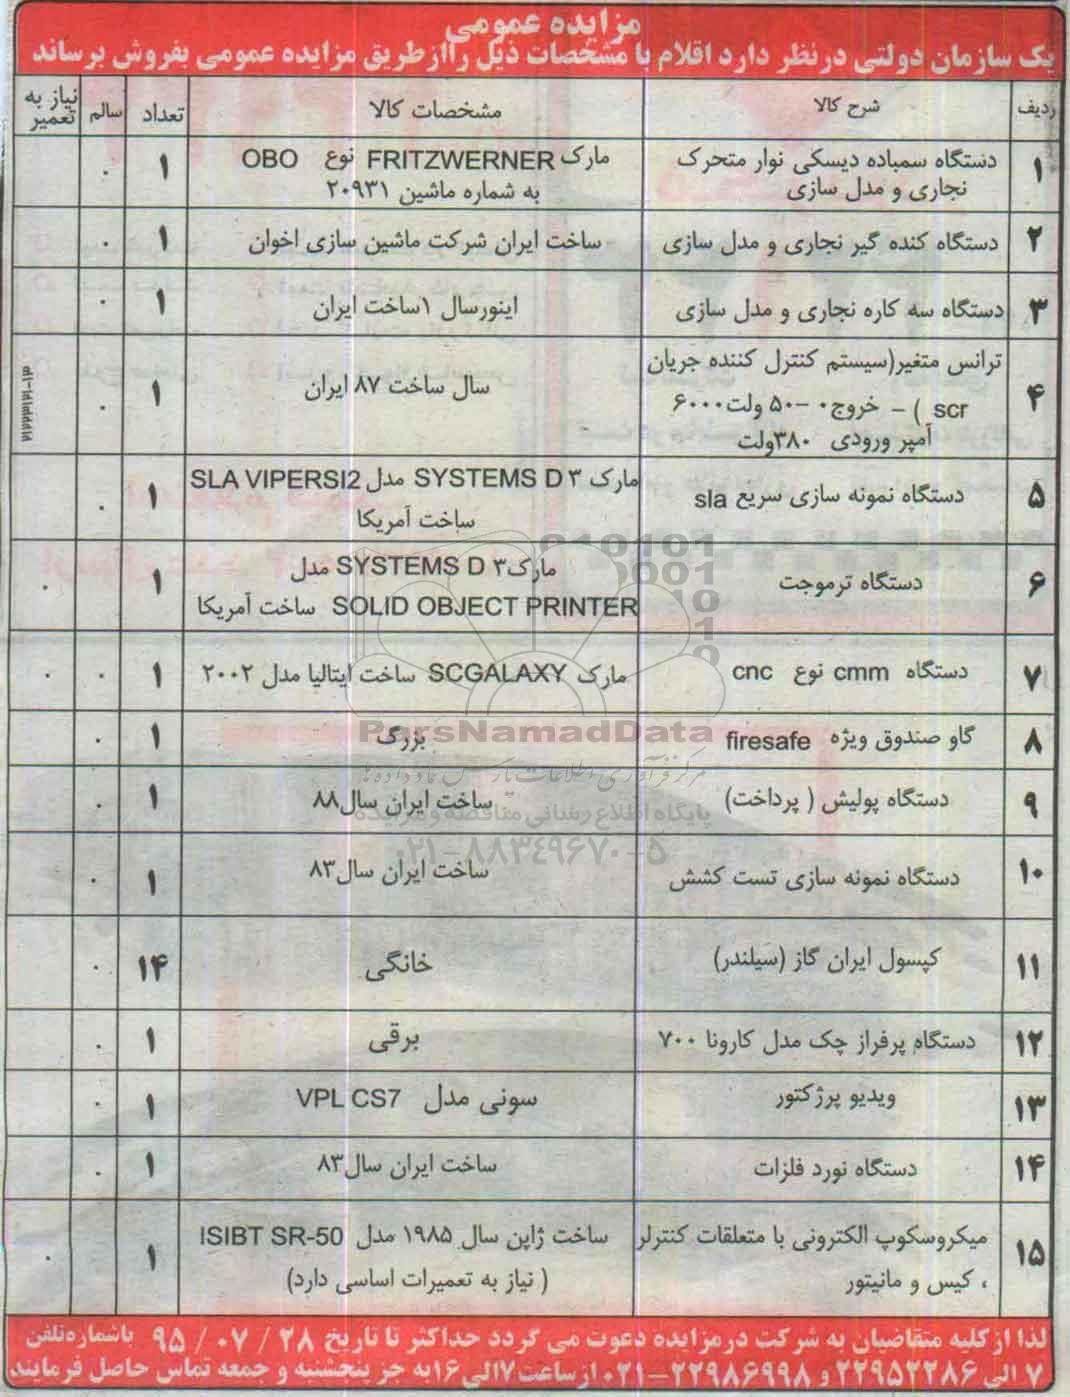 مزایده عمومی
یک سازمان دولتی درنظر دارد اقلام با مشخصات ذیل رااز طریق مزایده عمومی بفروش برساند
ردیف شرح کالا مشخصات کالا تعداد سالم نیاز به تعمیر
۱ دستگاه سمباده دیسکی نوار متحرک مارک FRITZWERNER نوع OBO ۱ .
نجاری و مدل سازی به شماره ماشین ۲۰۹۳۱
۲ دستگاه کنده گیر نجاری و مدل سازی ساخت ایران شرکت ماشین سازی اخوان ۱ .
۳ دستگاه سه کاره نجاری و مدل سازی اینورسال ۱ساخت ایران ۱ .
۴ ترانس متغیر(سیستم کنترل کننده جریان سال ساخت ۸۷ ایران ۱ .
scr ) – خروج۰ –۵۰ ولت۶۰۰۰
آمپر ورودی ۳۸۰ولت
۵ دستگاه نمونه سازی سریع sla مارک ۳ SYSTEMS D مدل SLA VIPERSI2 ۱ .
ساخت آمریکا
۶ دستگاه ترموجت مارک۳ SYSTEMS D مدل ۱ .
SOLID OBJECT PRINTER ساخت آمریکا
۷ دستگاه cmm نوع cnc مارک SCGALAXY ساخت ایتالیا مدل ۲۰۰۲ ۱ . .
۸ گاو صندوق ویژه firesafe بزرگ ۱ .
۹ دستگاه پولیش ( پرداخت) ساخت ایران سال۸۸ ۱ .
۱۰ دستگاه نمونه سازی تست کشش ساخت ایران سال۸۳ ۱ .
۱۱ کپسول ایران گاز (سیلندر) خانگی ۱۴ .
۱۲ دستگاه پرفراز چک مدل کارونا ۷۰۰ برقی ۱ .
۱۳ ویدیو پرژکتور سونی مدل VPL CS7 ۱ .
۱۴ دستگاه نورد فلزات ساخت ایران سال۸۳ ۱ .
۱۵ میکروسکوپ الکترونی با متعلقات کنترلر ساخت ژاپن سال ۱۹۸۵ مدل ISIBT SR-50 ۱ .
، کیس و مانیتور ( نیاز به تعمیرات اساسی دارد)
لذا از کلیه متقاضیان به شرکت درمزایده دعوت می گردد حداکثر تا تاریخ ۲۸ / ۰۷ / ۹۵ باشماره تلفن
۷ الی ۲۲۹۵۲۲۸۶ و ۲۲۹۸۶۹۹۸–۰۲۱ از ساعت ۷الی ۱۶به جز پنجشنبه و جمعه تماس حاصل فرمایند
ParsNamadData
مرکز فرآوری اطلاعات پارس نماد داده ها
پایگاه اطلاع رسانی مناقصه و مزایده
۰۲۱-۸۸۳۴۹۶۷۰-۵